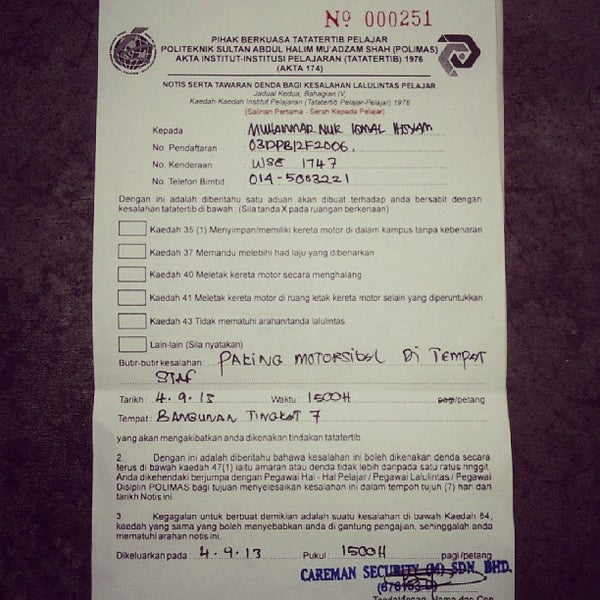 Nº 000251
PIHAK BERKUASA TATATERTIB PELAJAR
POLITEKNIK SULTAN ABDUL HALIM MU'ADZAM SHAH (POLIMAS)
AKTA INSTITUT-INSTITUSI PELAJARAN (TATATERTIB) 1976
(AKTA 174)
NOTIS SERTA TAWARAN DENDA BAGI KESALAHAN LALULINTAS PELAJAR
Jadual Kedua, Bahagian IV,
Kaedah-Kaedah Institut Pelajaran (Tatatertib Pelajar-Pelajar) 1976
(Salinan Pertama - Serah Kepada Pelajar)
Kepada MUHAMMAD NUR IQMAL HISYAM
No. Pendaftaran : 03DPB12F2006.
No. Kenderaan : WSE 1747
No. Telefon Bimbit : 014-5003221
Dengan ini adalah diberitahu satu aduan akan dibuat terhadap anda bersabit dengan
kesalahan tatatertib di bawah : (Sila tanda X pada ruangan berkenaan)
Kaedah 35 (1) Menyimpan/memiliki kereta motor di dalam kampus tanpa kebenaran
Kaedah 37 Memandu melebihi had laju yang dibenarkan
Kaedah 40 Meletak kereta motor secara menghalang
Kaedah 41 Meletak kereta motor di ruang letak kereta motor selain yang diperuntukkan
Kaedah 43 Tidak mematuhi arahan/tanda lalulintas
Lain-lain (Sila nyatakan)
Butir-butir kesalahan : PAKING MOTORSIKAL DI TEMPAT
STAF
Tarikh : 4.9.13 Waktu : 1500H pagi/petang
Tempat : BANGUNAN TINGKAT 7
yang akan mengakibatkan anda dikenakan tindakan tatatertib.
2. Dengan ini adalah diberitahu bahawa kesalahan ini boleh dikenakan denda secara
terus di bawah kaedah 47(1) iaitu amaran atau denda tidak lebih daripada satu ratus ringgit.
Anda dikehendaki berjumpa dengan Pegawai Hal - Hal Pelajar / Pegawai Lalulintas / Pegawai
Disiplin POLIMAS bagi tujuan menyelesaikan kesalahan ini dalam tempoh tujuh (7) hari dari
tarikh Notis ini.
3. Kegagalan untuk berbuat demikian adalah suatu kesalahan di bawah Kaedah 64,
kaedah yang sama yang boleh menyebabkan anda di gantung pengajian, sehinggalah anda
mematuhi arahan notis ini.
Dikeluarkan pada : 4.9.13 Pukul : 1500H pagi/petang
CAREMAN SECURITY (M) SDN. BHD.
Tandatangan, Nama dan Cop